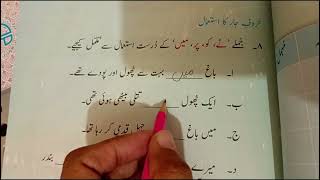 حروفِ جار کا استعمال
۸۔ جملے 'نے، کو، پر، میں' کے درست استعمال سے مکمل کیجیے۔
ا۔ باغ میں بہت سے پھول اور پودے تھے۔
ب۔ ایک پھول ______ تتلی بیٹھی ہوئی تھی۔
ج۔ میں باغ ______ چہل قدمی کر رہا تھا۔
د۔ میرے ______ بندر